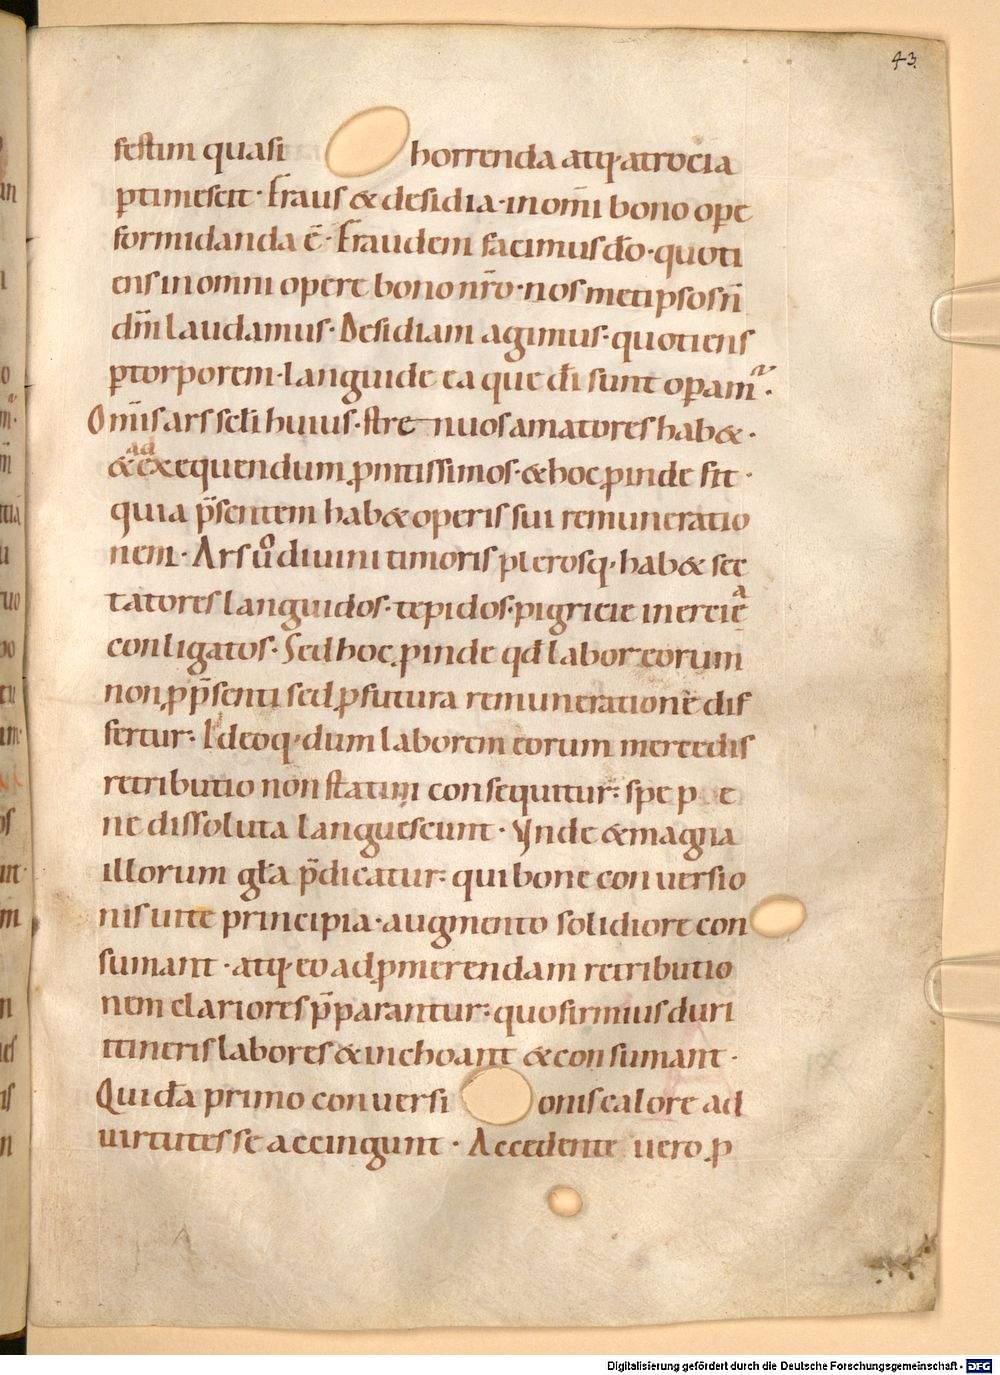 43.
festim quasi horrenda atq; atrocia
ꝑtimescit · Fraus & desidia · in om̄i bono ope
formidanda ē · Fraudem facimus dō · quoti
ens in omni opere bono nr̄o · nos met ipsos n̄
dm̄ laudamus · Desidiam agimus · quotiens
ꝑ torporem · languide ea que dī sunt oꝑam᷑ ·
Om̄is ars sc̄li huius · strenuos amatores hab& ·
& ad exequendum ꝓmtissimos · & hoc ꝓinde fit ·
quia p̄sentem hab& operis sui remuneratio
nem · Ars ū diuini timoris plerosq; hab& sec
tatores languidos · tepidos · pigricie inercie a
conligatos · Sed hoc ꝓinde qd̄ labor eorum
non ꝓ p̄senti sed ꝓ futura remuneratione dif
fertur · Ideoq; dum laborem eorum mercedis
retributio non statim consequitur · spe p e
ne dissoluta languescunt · Vnde & magna
illorum gl̄a p̄dicatur · qui bone conuersio
nis uite principia · augmento solidiore con
sumant · atq; eo ad ꝓmerendam retributio
nem clariores p̄parantur · quo firmius duri
itineris labores & inchoant & consumant ·
Quidā primo conuersi onis calore ad
uirtutes se accingunt · Accedente uero ꝓ
Digitalisierung gefördert durch die Deutsche Forschungsgemeinschaft - DFG